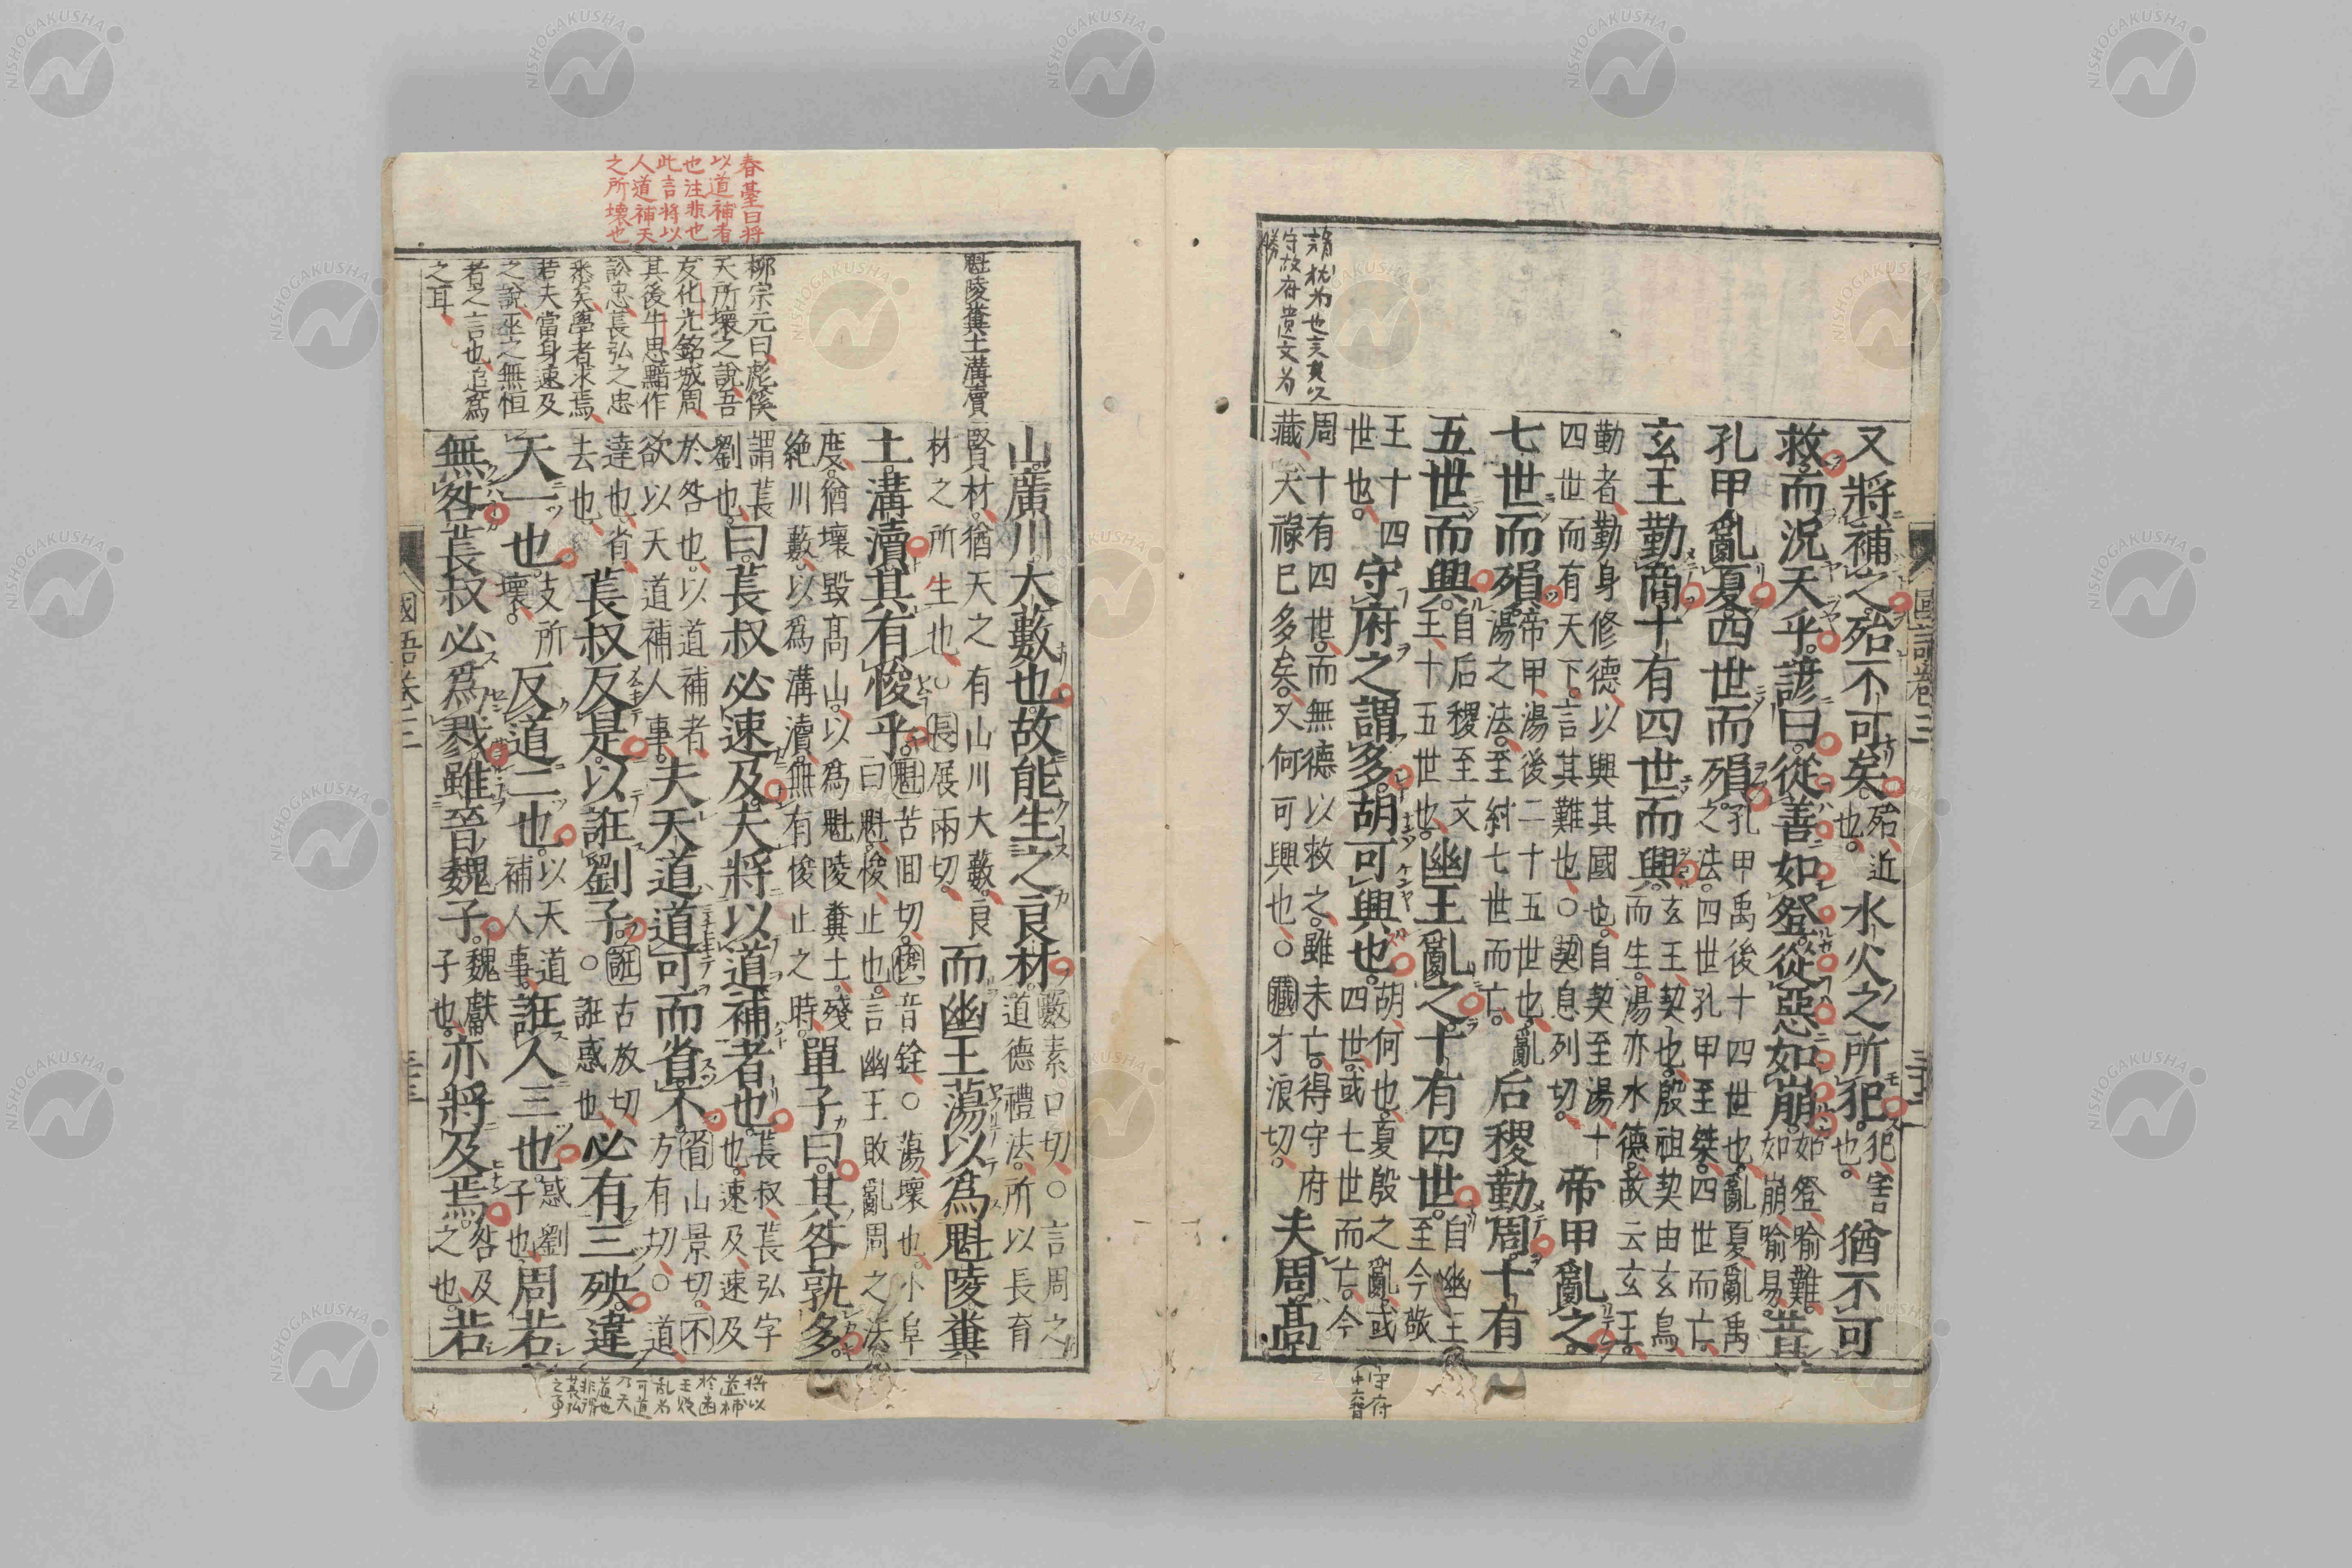 又將補之殆不可矣。殆、近也。水火之所犯犯、害也。猶不可
救。而況天乎。諺曰。從善如登。從惡如崩。如登、喻難。如崩、喻易。昔
孔甲亂夏。四世而殞。孔甲、禹後十四世也。亂夏、亂禹之法。四世、孔甲至桀。四世而亡。
玄王勤商。十有四世而興。玄王、契也。殷祖契由玄鳥而生。湯亦水德。故云玄王。
勤者、勤身修德、以興其國也。自契至湯、十四世而有天下。言其難也。○契、息列切。帝甲亂之。
七世而殞。帝甲、湯後二十五世也。亂湯之法。至紂七世而亡。后稷勤周。十有
五世而興。自后稷至文王、十五世也。幽王亂之。十有四世。自幽王至今敬
王十四世也。守府之謂多。胡可興也。胡、何也。夏殷之亂、或四世、或七世而亡。今
周十有四世。而無德以救之。雖未亡。得守府藏、天祿已多矣。又何可興也。○藏、才浪切。夫周。高
守府遺文爲
國語卷三
山。廣川。大藪也。故能生之良材。藪、素口切。○言周之道德禮法、所以長育
賢材、猶天之有山川大藪、良材之所生也。○長、展兩切。而幽王蕩以爲魁陵糞
土。溝瀆。其有悛乎。魁、苦回切。悛、音銓。○蕩、壞也。小阜曰魁。悛、止也。言幽王敗亂周之法
度。猶壞毀高山、以爲魁陵糞土。殘絶川藪、以爲溝瀆。無有悛止之時。單子曰。其咎孰多。
謂萇劉也。曰。萇叔必速及。夫將以道補者也。萇叔、萇弘字也。速及、速及
於咎也。以道補者、欲以天道補人事。夫天道道可而省不。省、山景切。不、方有切。○道、
達也。省、去也。萇叔反是。以誑劉子。誑、古放切。○誑、惑也。必有三殃。違
天一也。支所壞。反道二也。以天道補人事。誑人三也。惑劉子也。周若
無咎。萇叔必爲戮。雖晉魏子。魏子、魏獻子也。亦將及焉。咎及之也。若
國語卷三
魁陵糞土溝瀆
柳宗元曰彪傒
天所壞之說吾
友化光銘城周
其後牛思黯作
訟忠萇弘之忠
悉矣學者求焉
若夫當身速及
之說巫之無恒
者之言也追爲
之耳
春臺曰將
以道補者
也注非也
此言將以
人道補天
之所壞也